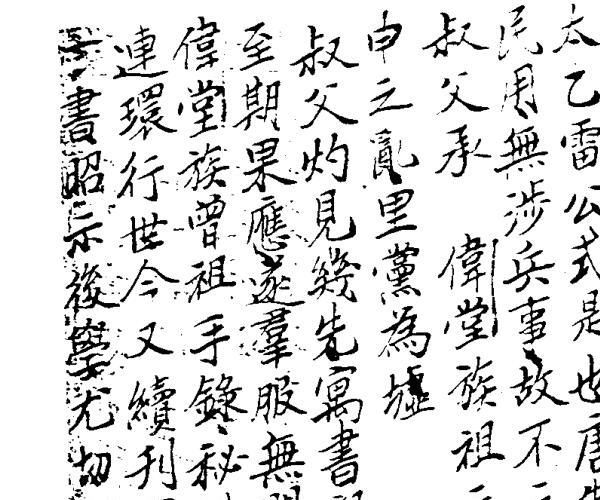 太乙雷公式是也唐
民用無涉兵事故不
叔父承　偉堂族祖
申之亂里黨為墟
叔父灼見幾先寓書
至期果應遂羣服無
偉堂族曾祖手錄秘
連環行世今又續刋
書昭示後學尤切